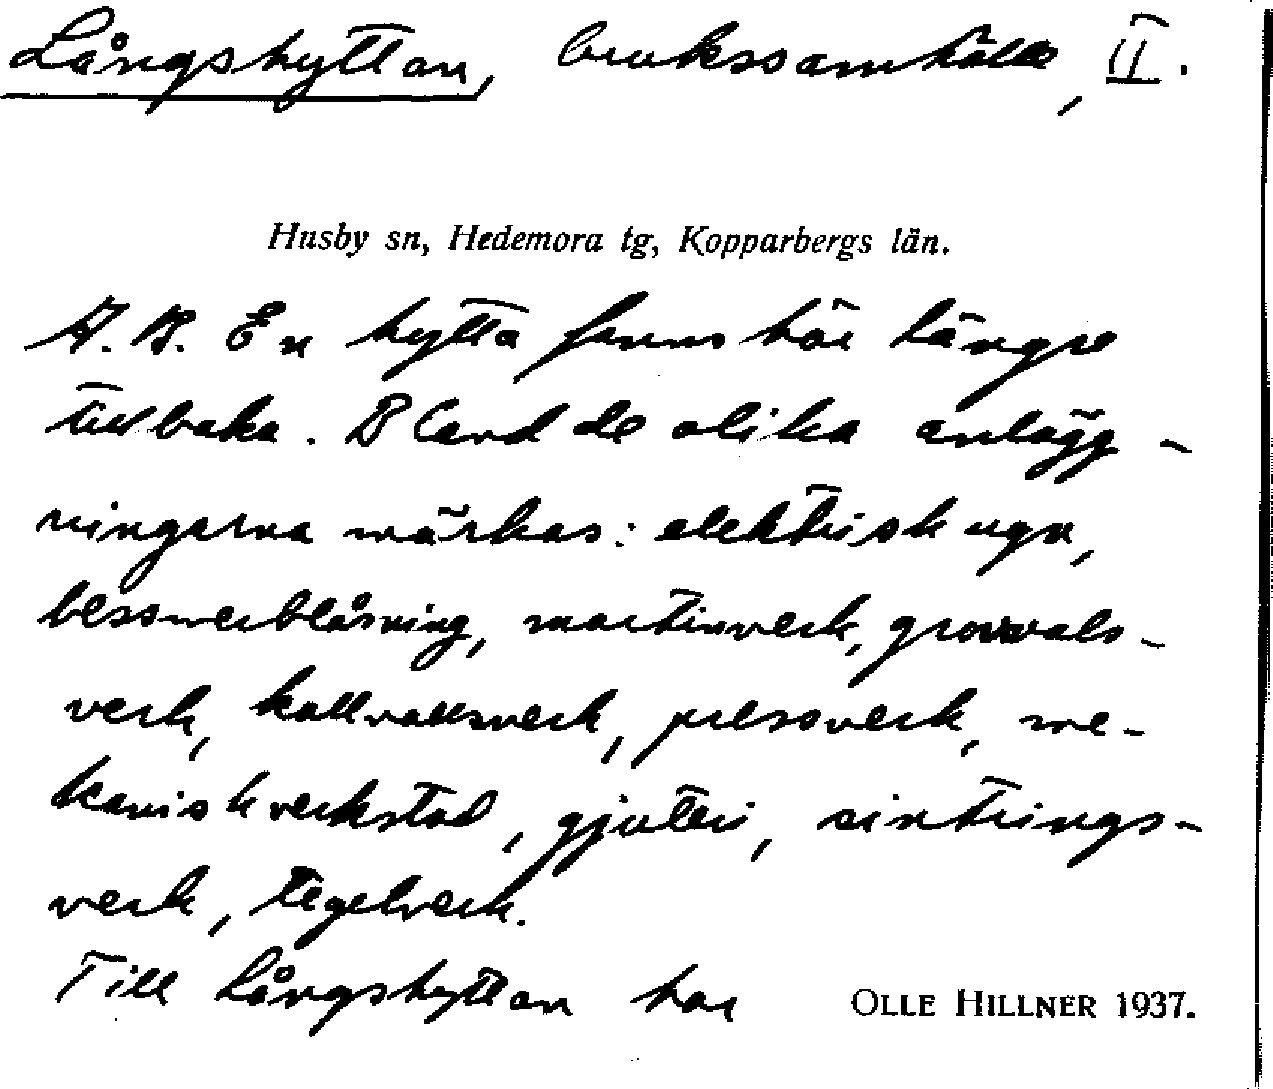 Långshyttan, brukssamhälle, II.
Husby sn, Hedemora tg, Kopparbergs län.
A. B. En hytta fanns här längre
tillbaka. Bland de olika anlägg-
ningarna märkas: elektrisk ugn,
bessemerblåsning, martinverk, grovvals-
verk, kallvalsverk, pressverk, me-
kanisk verkstad, gjuteri, sintrings-
verk, tegelverk.
Till Långshyttan har
OLLE HILLNER 1937.